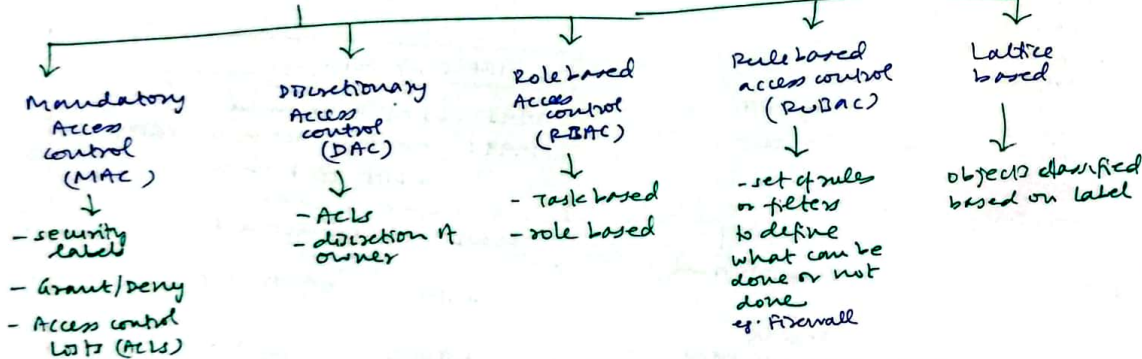 Mandatory
Access
control
(MAC)
- security
labels
- Grant/Deny
- Access control
Lists (ACLs)
Discretionary
Access
control
(DAC)
- ACLs
- discretion of
owner
Role based
Access
control
(RBAC)
- Task based
- role based
Rule based
access control
(RuBAC)
- set of rules
or filters
to define
what can be
done or not
done
eg. Firewall
Lattice
based
objects classified
based on label